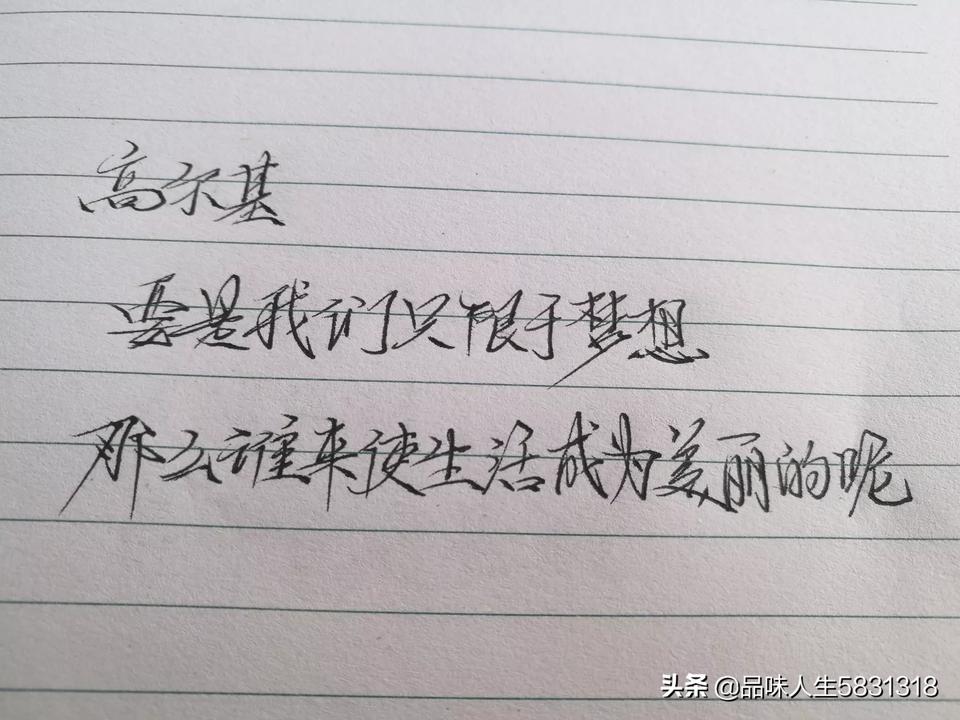 高尔基
要是我们只限于梦想
那么谁来使生活成为美丽的呢
头条 @品味人生5831318